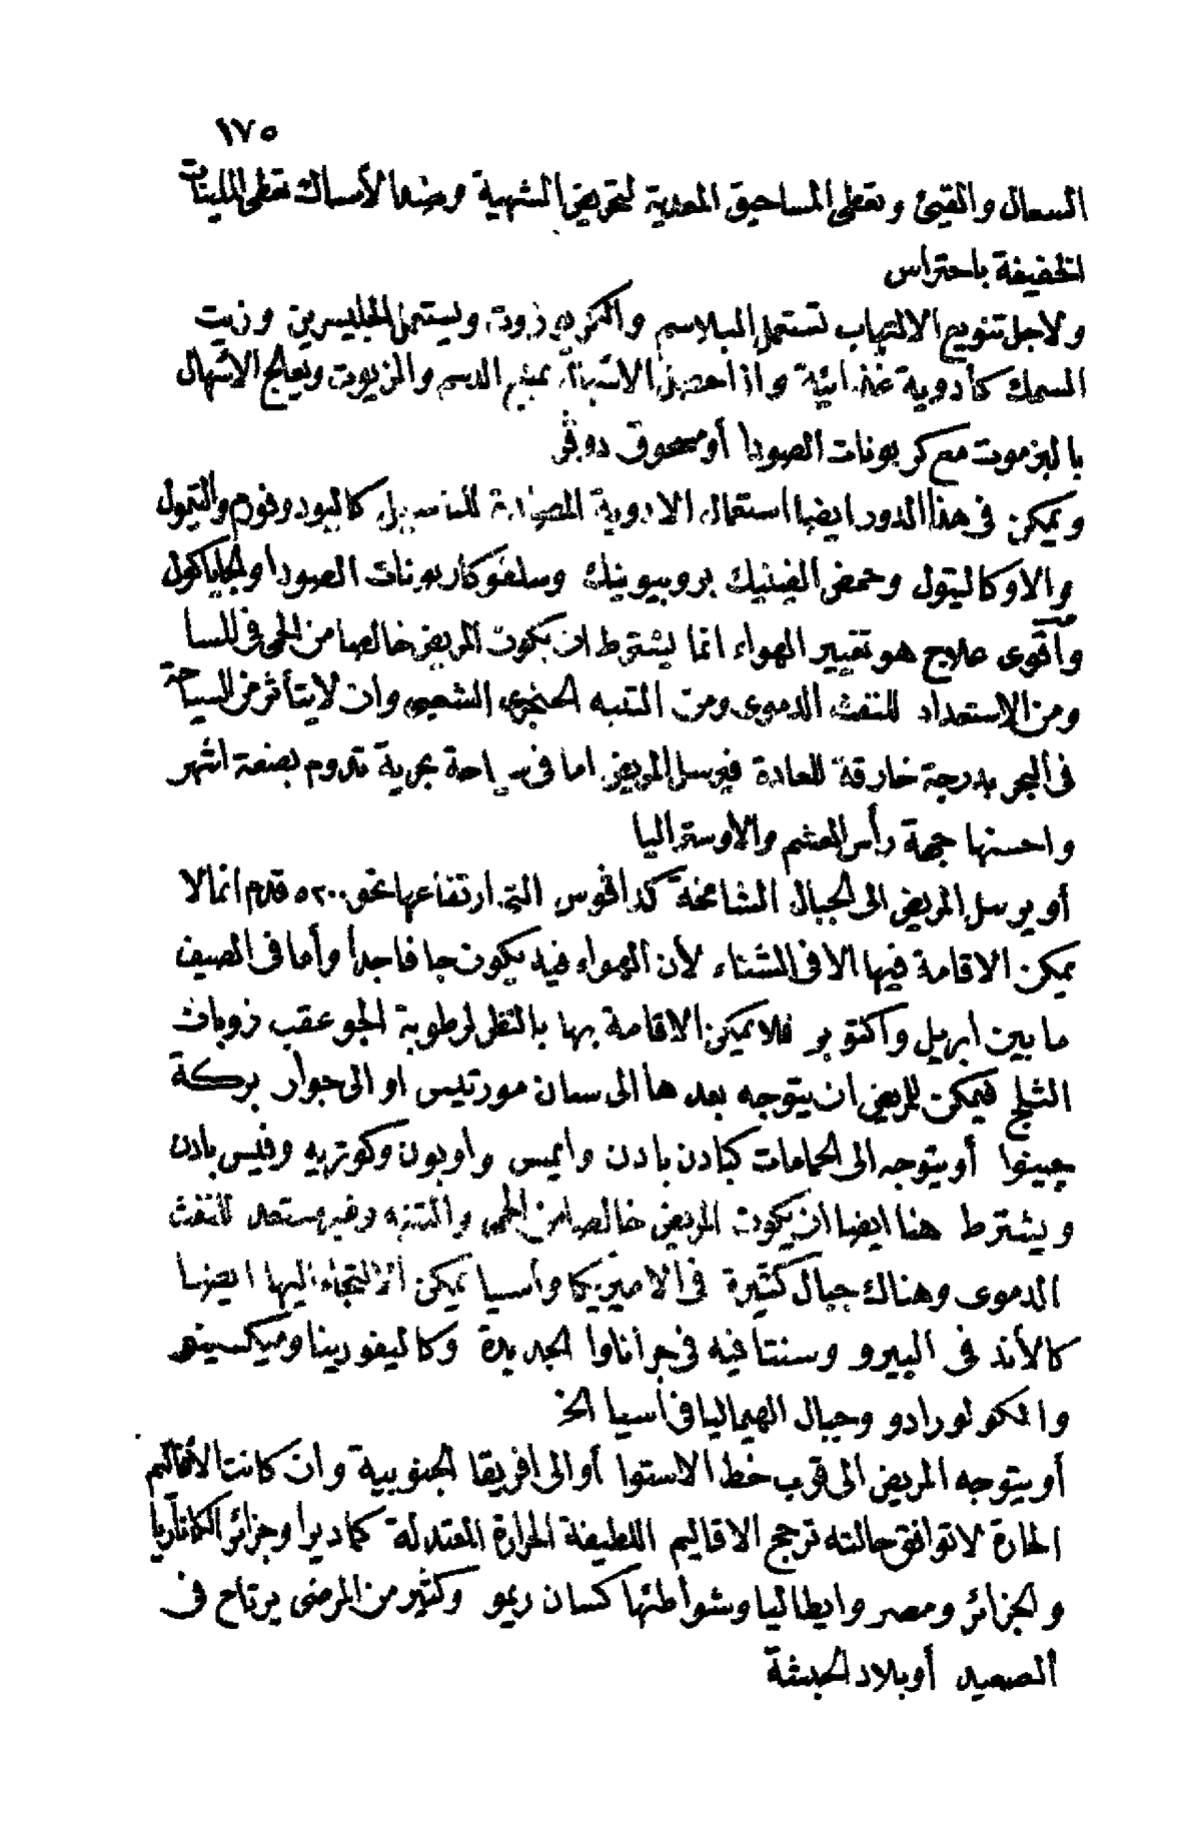 ١٧٥
السعال والقيئ وتعطى المساحيق المعدية لتحريض الشهية وضد الأمساك تعطى الملينات
الخفيفة باحتراس
ولاجل تنويع الالتهاب تستعمل البلاسم والكريوزوت ويستعمل الجليسرين وزيت
السمك كأدوية غذائية واذا حصل الاشتباه يمنع الدسم والزيوت ويعالج الاسهال
بالبزموت مع كربونات الصودا أو مسحوق دوڤر
ويمكن فى هذا الدور ايضا استعمال الادوية المضادة للباسيل كاليودوفورم والتيمول
والاوكاليتول وحمض الفينيك بروبيونيك وسلفوكاربونات الصودا والجاياكول
وأقوى علاج هو تغيير الهواء انما يشترط ان يكون المريض خالصا من الحمى فى المسا
ومن الاستعداد للنفث الدموى ومن التنبه الحنجرى الشعبى وان لا يتأثر من السياحة
فى البحر بدرجة خارقة للعادة فيرسل المريض اما فى سياحة بحرية تدوم بضعة اشهر
واحسنها جهة رأس العشم والاوستراليا
أو يرسل المريض الى الجبال الشامخة كدافوس التى ارتفاعها نحو ٥٢٠٠ قدم انما لا
يمكن الاقامة فيها الا فى الشتاء لأن الهواء فيه يكون جافا جدا وأما فى الصيف
ما بين ابريل واكتوبر فلا يمكن الاقامة بها بالنظر لرطوبة الجو عقب ذوبان
الثلج فيمكن للمريض ان يتوجه بعدها الى سان مورتيس او الى جوار بركة
جينوا أو يتوجه الى الحمامات كبادن بادن وايمس واوبون وكوتريه وفيس بادن
ويشترط هنا ايضا ان يكون المريض خالصا من الحمى والتنبه وغير مستعد للنفث
الدموى وهناك جبال كثيرة فى الاميريكا وأسيا يمكن الالتجاء اليها ايضا
كالأند فى البيرو وسنتافيه فى جراناوا الجديدة وكاليفورينا وميكسيقه
والكولورادو وجبال الهيماليا فى أسيا الخ
أو يتوجه المريض الى قرب خط الاستوا أو الى افريقا الجنوبية وان كانت الأقاليم
الحارة لا توافق حالته ترجح الاقاليم اللطيفة الحرارة المعتدلة كماديرا وجزائر الكاناريا
والجزائر ومصر وايطاليا وشواطئها كسان ريمو وكثير من المرضى يرتاح فى
الصعيد أو بلاد الحبشة